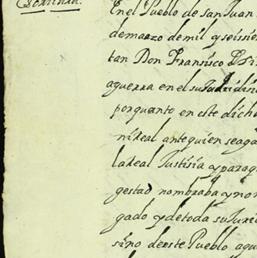 En el Pueblo de San Juan
de março de mil y seisien
tan Don Fransisco
aguerra en el su Juridi
por quanto en este dicho
ni real ante quien se aga
la real Justisia y para q
gestad nombraba y no
gado y de toda su Juri
sino deeste Pueblo agu